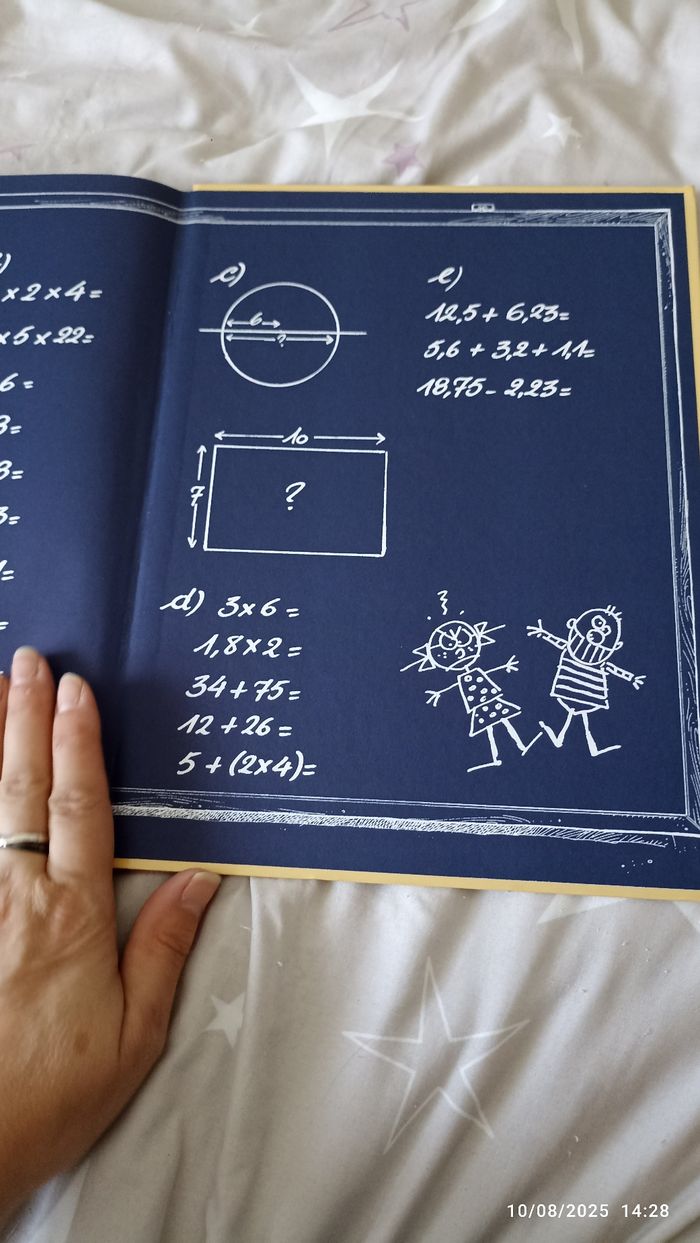 )
x 2 x 4 =
x 5 x 22=
6 =
3=
3=
3=
1=
=
c)
6
?
10
7
?
d) 3x6 =
1,8x2 =
34+75=
12 +26 =
5 + (2x4)=
e)
12,5 + 6,23=
5,6 + 3,2 + 1,1=
18,75 - 2,23=
10/08/2025 14:28